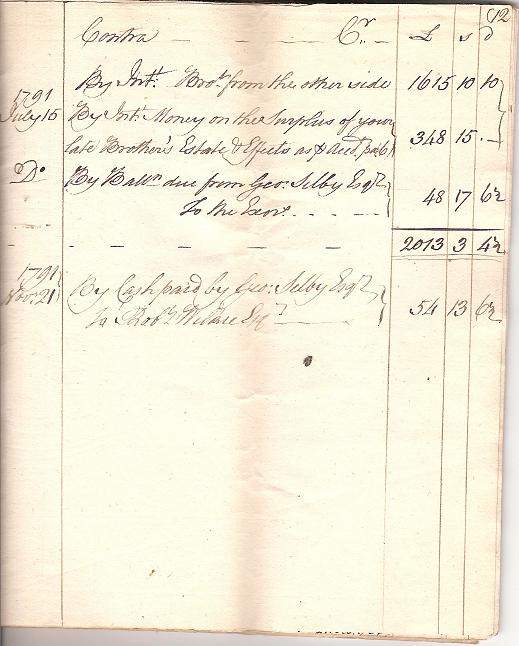 12
Contra — — — Cr. — £ s d
By Int.t Bro.t from the other side 1615 10 10
1791
July 15 By Int.t Money on the Surplus of your
late Brother's Estate & Effects as p Acct. pa: 6 348 15 . —
Do. By Ball.n due from Geo: Selby Esq.r
To the Exor. - - - - 48 17 6½
— — — — — — 2013 3 4½
1791
Nov: 21 By Cash paid by Geo: Selby Esq.r
To Rob.t Wilkie Esq.r — 54 13 6½